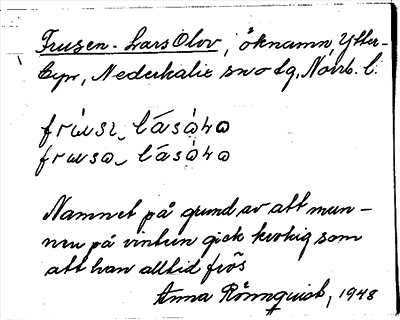 Frusen-Lars Olov, öknamn, Ytter-
byn, Nederkalix sn o tg, Norrb. l.
Namnet på grund av att mun-
nen på vintern gick krokig som
att han alltid frös
Anna Rönnquist, 1948